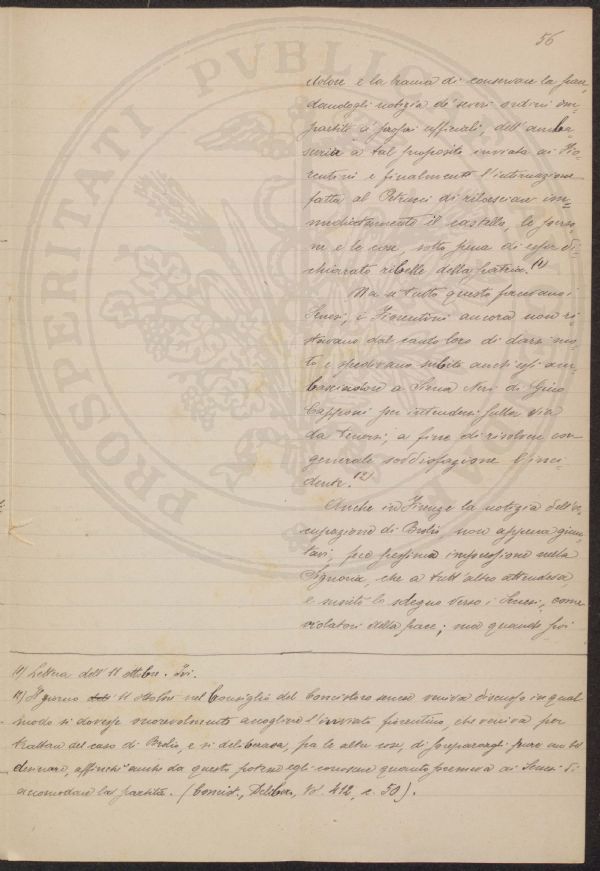 56
dolore e la brama di conservare la pace,
dandogli notizia de' severi ordini im=
partiti ai propri ufficiali, dell'amba=
sceria a tal proposito inviata ai Fio=
rentini e finalmente l'intimazione
fatta al Petrucci di rilasciare im=
mediatamente il castello, le perso=
ne e le cose, sotto pena di esser di=
chiarato ribelle della patria. (1)
Ma se tutto questo facevano i
Senesi, i Fiorentini ancora non ri=
stavano dal canto loro di darsi mo=
to e spedivano subito anch'essi am=
basciatore a Siena Neri di Gino
Capponi per intendersi sulla via
da tenersi, a fine di risolvere con
generale soddisfazione l'inci=
dente. (2)
Anche in Firenze la notizia dell'oc=
cupazione di Brolio, non appena giun=
tavi, fece pessima impressione nella
Signoria, che a tutt'altro attendeva,
e suscitò lo sdegno verso i Senesi, come
violatori della pace; ma quando poi
(1) Lettera dell'11 ottobre. Ivi.
(2) Il giorno 11 ottobre nel Consiglio del Concistoro senese veniva discusso in qual
modo si dovesse onorevolmente accogliere l'inviato fiorentino, che veniva per
trattare del caso di Brolio, e si deliberava, fra le altre cose, di preparargli
desinare, affinchè anche da questo potesse egli conoscere quanto premeva ai Senesi di
accomodare la partita. (Concist., Deliber., Vol. 412, c. 50).
PROSPERITATI PVBLICAE